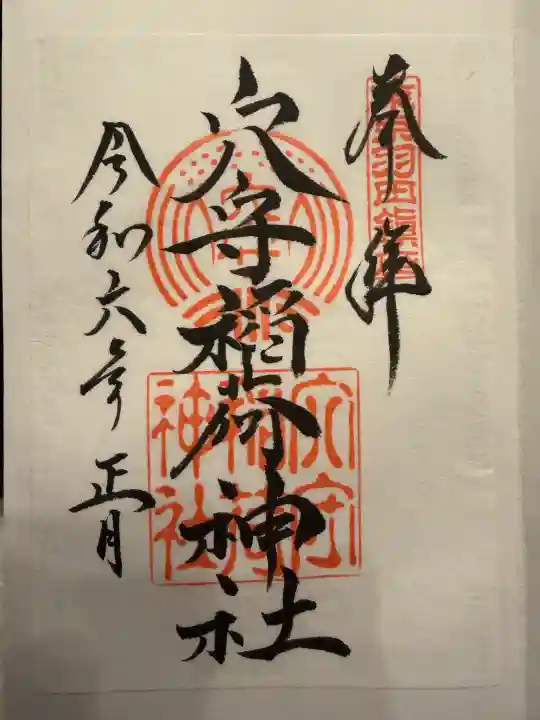 奉拝
東羽田鎮守
穴守稲荷神社
穴守
稲荷
神社
令和六年正月